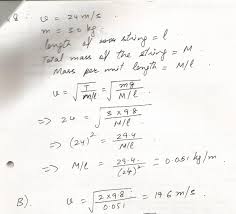 8. v = 24 m/s.
m = 3.0 kg.
length of string = l
Total mass of the string = M.
Mass per unit length = M/l
v = √(T / m/l) = √(mg / M/l)
⇒ 24 = √(3 × 9.8 / M/l)
⇒ (24)² = 29.4 / M/l
⇒ M/l = 29.4 / (24)² = 0.051 kg/m
B). v = √(2 × 9.8 / 0.051) = 19.6 m/s.